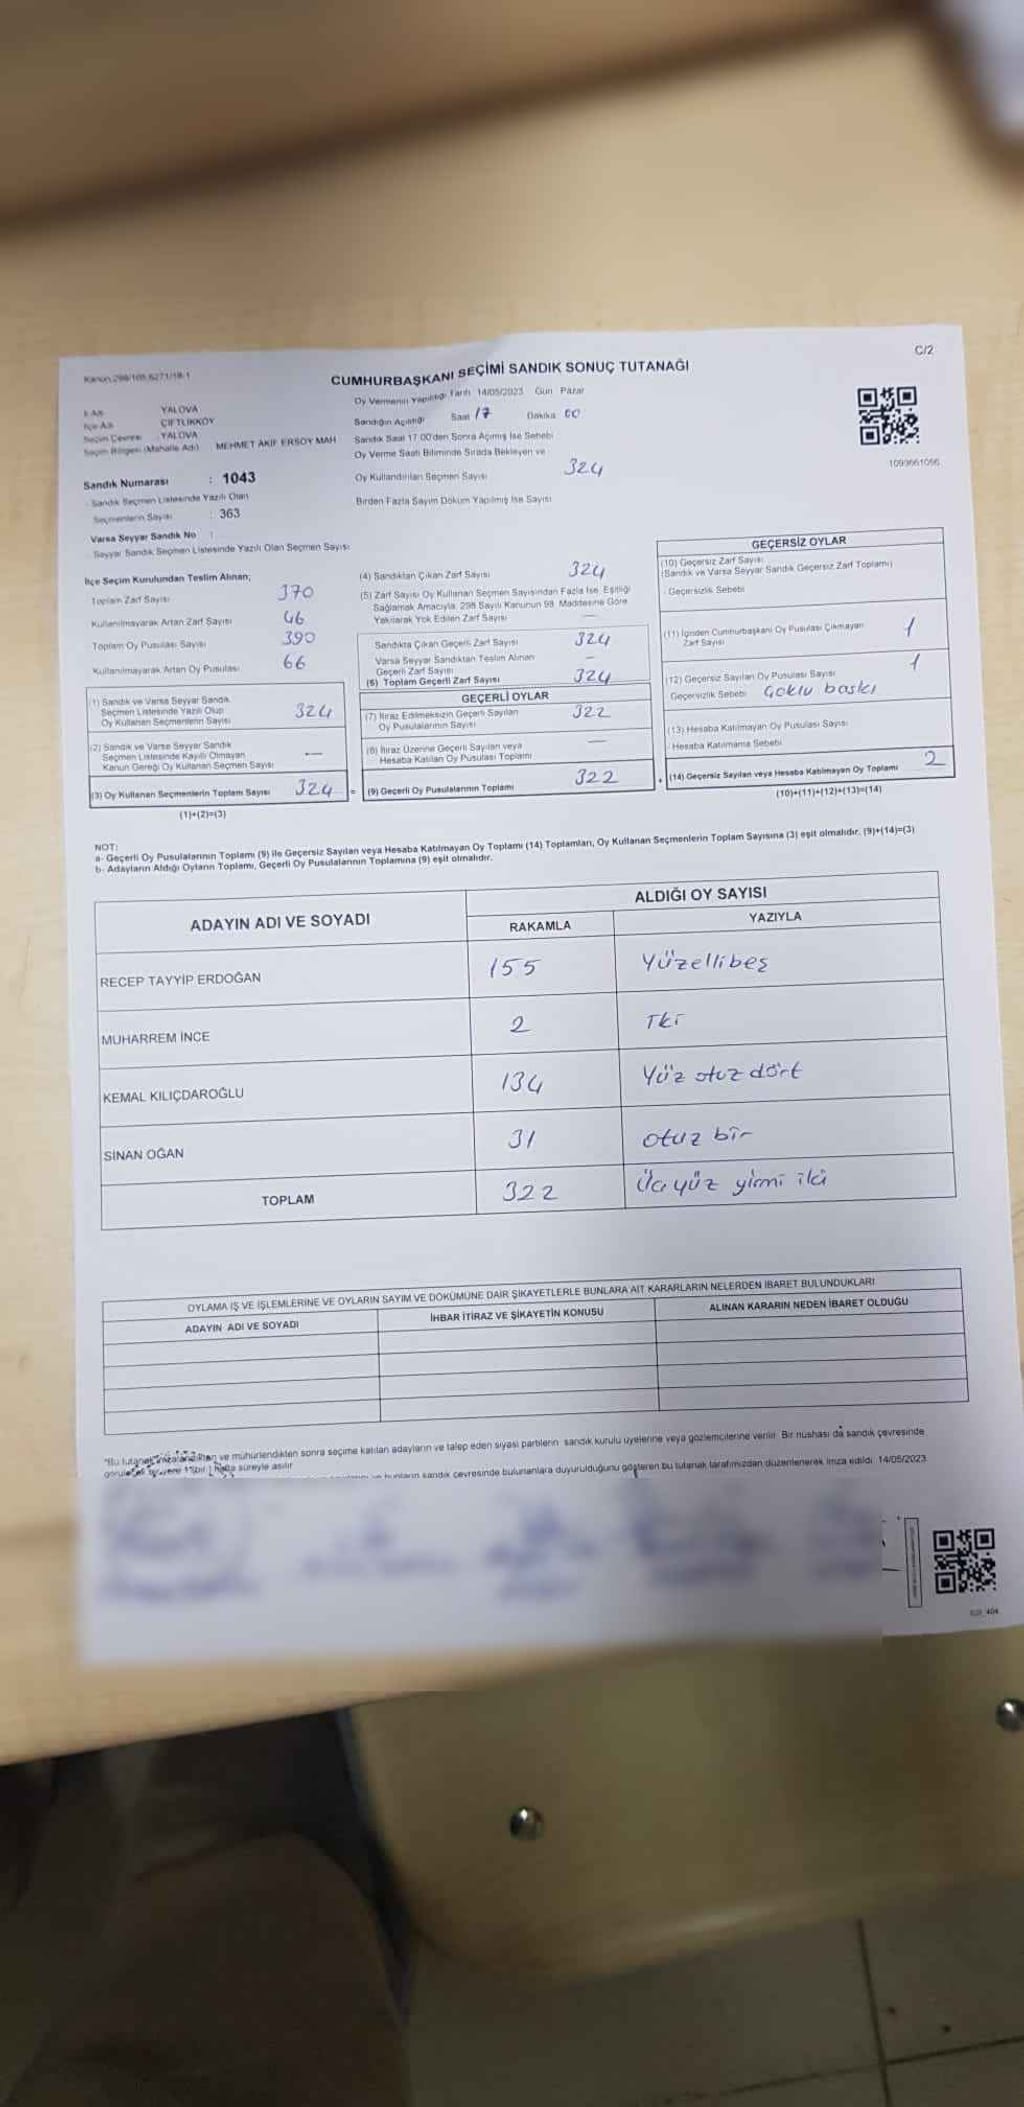 Kanun 298/105 6271/18-1
C/2
CUMHURBAŞKANI SEÇİMİ SANDIK SONUÇ TUTANAĞI
İl Adı YALOVA
İlçe Adı ÇİFTLİKKÖY
Seçim Çevresi YALOVA
Seçim Bölgesi (Mahalle Adı) MEHMET AKİF ERSOY MAH
Sandık Numarası : 1043
Sandık Seçmen Listesinde Yazılı Olan
Seçmenlerin Sayısı : 363
Varsa Seyyar Sandık No :
Seyyar Sandık Seçmen Listesinde Yazılı Olan Seçmen Sayısı
Oy Vermenin Yapıldığı Tarih 14/05/2023 Gün Pazar
Sandığın Açıldığı Saat 17 Dakika 00
Sandık Saat 17.00'den Sonra Açılmış İse Sebebi
Oy Verme Saati Bitiminde Sırada Bekleyen ve
Oy Kullandırılan Seçmen Sayısı 324
Birden Fazla Sayım Döküm Yapılmış İse Sayısı
1099661066
İlçe Seçim Kurulundan Teslim Alınan;
Toplam Zarf Sayısı 370
Kullanılmayarak Artan Zarf Sayısı 46
Toplam Oy Pusulası Sayısı 390
Kullanılmayarak Artan Oy Pusulası 66
(1) Sandık ve Varsa Seyyar Sandık
Seçmen Listesinde Yazılı Olup
Oy Kullanan Seçmenlerin Sayısı 324
(2) Sandık ve Varsa Seyyar Sandık
Seçmen Listesinde Kayıtlı Olmayan
Kanun Gereği Oy Kullanan Seçmen Sayısı —
(3) Oy Kullanan Seçmenlerin Toplam Sayısı 324 =
(1)+(2)=(3)
(4) Sandıktan Çıkan Zarf Sayısı 324
(5) Zarf Sayısı Oy Kullanan Seçmen Sayısından Fazla İse, Eşitliği
Sağlamak Amacıyla, 298 Sayılı Kanunun 98. Maddesine Göre
Yakılarak Yok Edilen Zarf Sayısı —
Sandıkta Çıkan Geçerli Zarf Sayısı 324
Varsa Seyyar Sandıktan Teslim Alınan
Geçerli Zarf Sayısı —
(6) Toplam Geçerli Zarf Sayısı 324
GEÇERLİ OYLAR
(7) İtiraz Edilmeksizin Geçerli Sayılan
Oy Pusulalarının Sayısı 322
(8) İtiraz Üzerine Geçerli Sayılan veya
Hesaba Katılan Oy Pusulası Toplamı —
(9) Geçerli Oy Pusulalarının Toplamı 322 +
GEÇERSİZ OYLAR
(10) Geçersiz Zarf Sayısı
(Sandık ve Varsa Seyyar Sandık Geçersiz Zarf Toplamı)
Geçersizlik Sebebi
(11) İçinden Cumhurbaşkanı Oy Pusulası Çıkmayan
Zarf Sayısı 1
(12) Geçersiz Sayılan Oy Pusulası Sayısı 1
Geçersizlik Sebebi Çoklu baskı
(13) Hesaba Katılmayan Oy Pusulası Sayısı
Hesaba Katılmama Sebebi
(14) Geçersiz Sayılan veya Hesaba Katılmayan Oy Toplamı 2
(10)+(11)+(12)+(13)=(14)
NOT:
a- Geçerli Oy Pusulalarının Toplamı (9) ile Geçersiz Sayılan veya Hesaba Katılmayan Oy Toplamı (14) Toplamları, Oy Kullanan Seçmenlerin Toplam Sayısına (3) eşit olmalıdır. (9)+(14)=(3)
b- Adayların Aldığı Oyların Toplamı, Geçerli Oy Pusulalarının Toplamına (9) eşit olmalıdır.
ADAYIN ADI VE SOYADI ALDIĞI OY SAYISI
RAKAMLA YAZIYLA
RECEP TAYYİP ERDOĞAN 155 Yüzellibeş
MUHARREM İNCE 2 İki
KEMAL KILIÇDAROĞLU 134 Yüz otuz dört
SİNAN OĞAN 31 otuz bir
TOPLAM 322 Üç yüz yirmi iki
OYLAMA İŞ VE İŞLEMLERİNE VE OYLARIN SAYIM VE DÖKÜMÜNE DAİR ŞİKAYETLERLE BUNLARA AİT KARARLARIN NELERDEN İBARET BULUNDUKLARI
ADAYIN ADI VE SOYADI İHBAR İTİRAZ VE ŞİKAYETİN KONUSU ALINAN KARARIN NEDEN İBARET OLDUĞU
ve mühürlendikten sonra seçime katılan adayların ve talep eden siyasi partilerin sandık kurulu üyelerine veya gözlemcilerine verilir. Bir nüshası da sandık çevresinde
hafta süreyle asılır
sandık çevresinde bulunanlara duyurulduğunu gösteren bu tutanak tarafımızdan düzenlenerek imza edildi. 14/05/2023